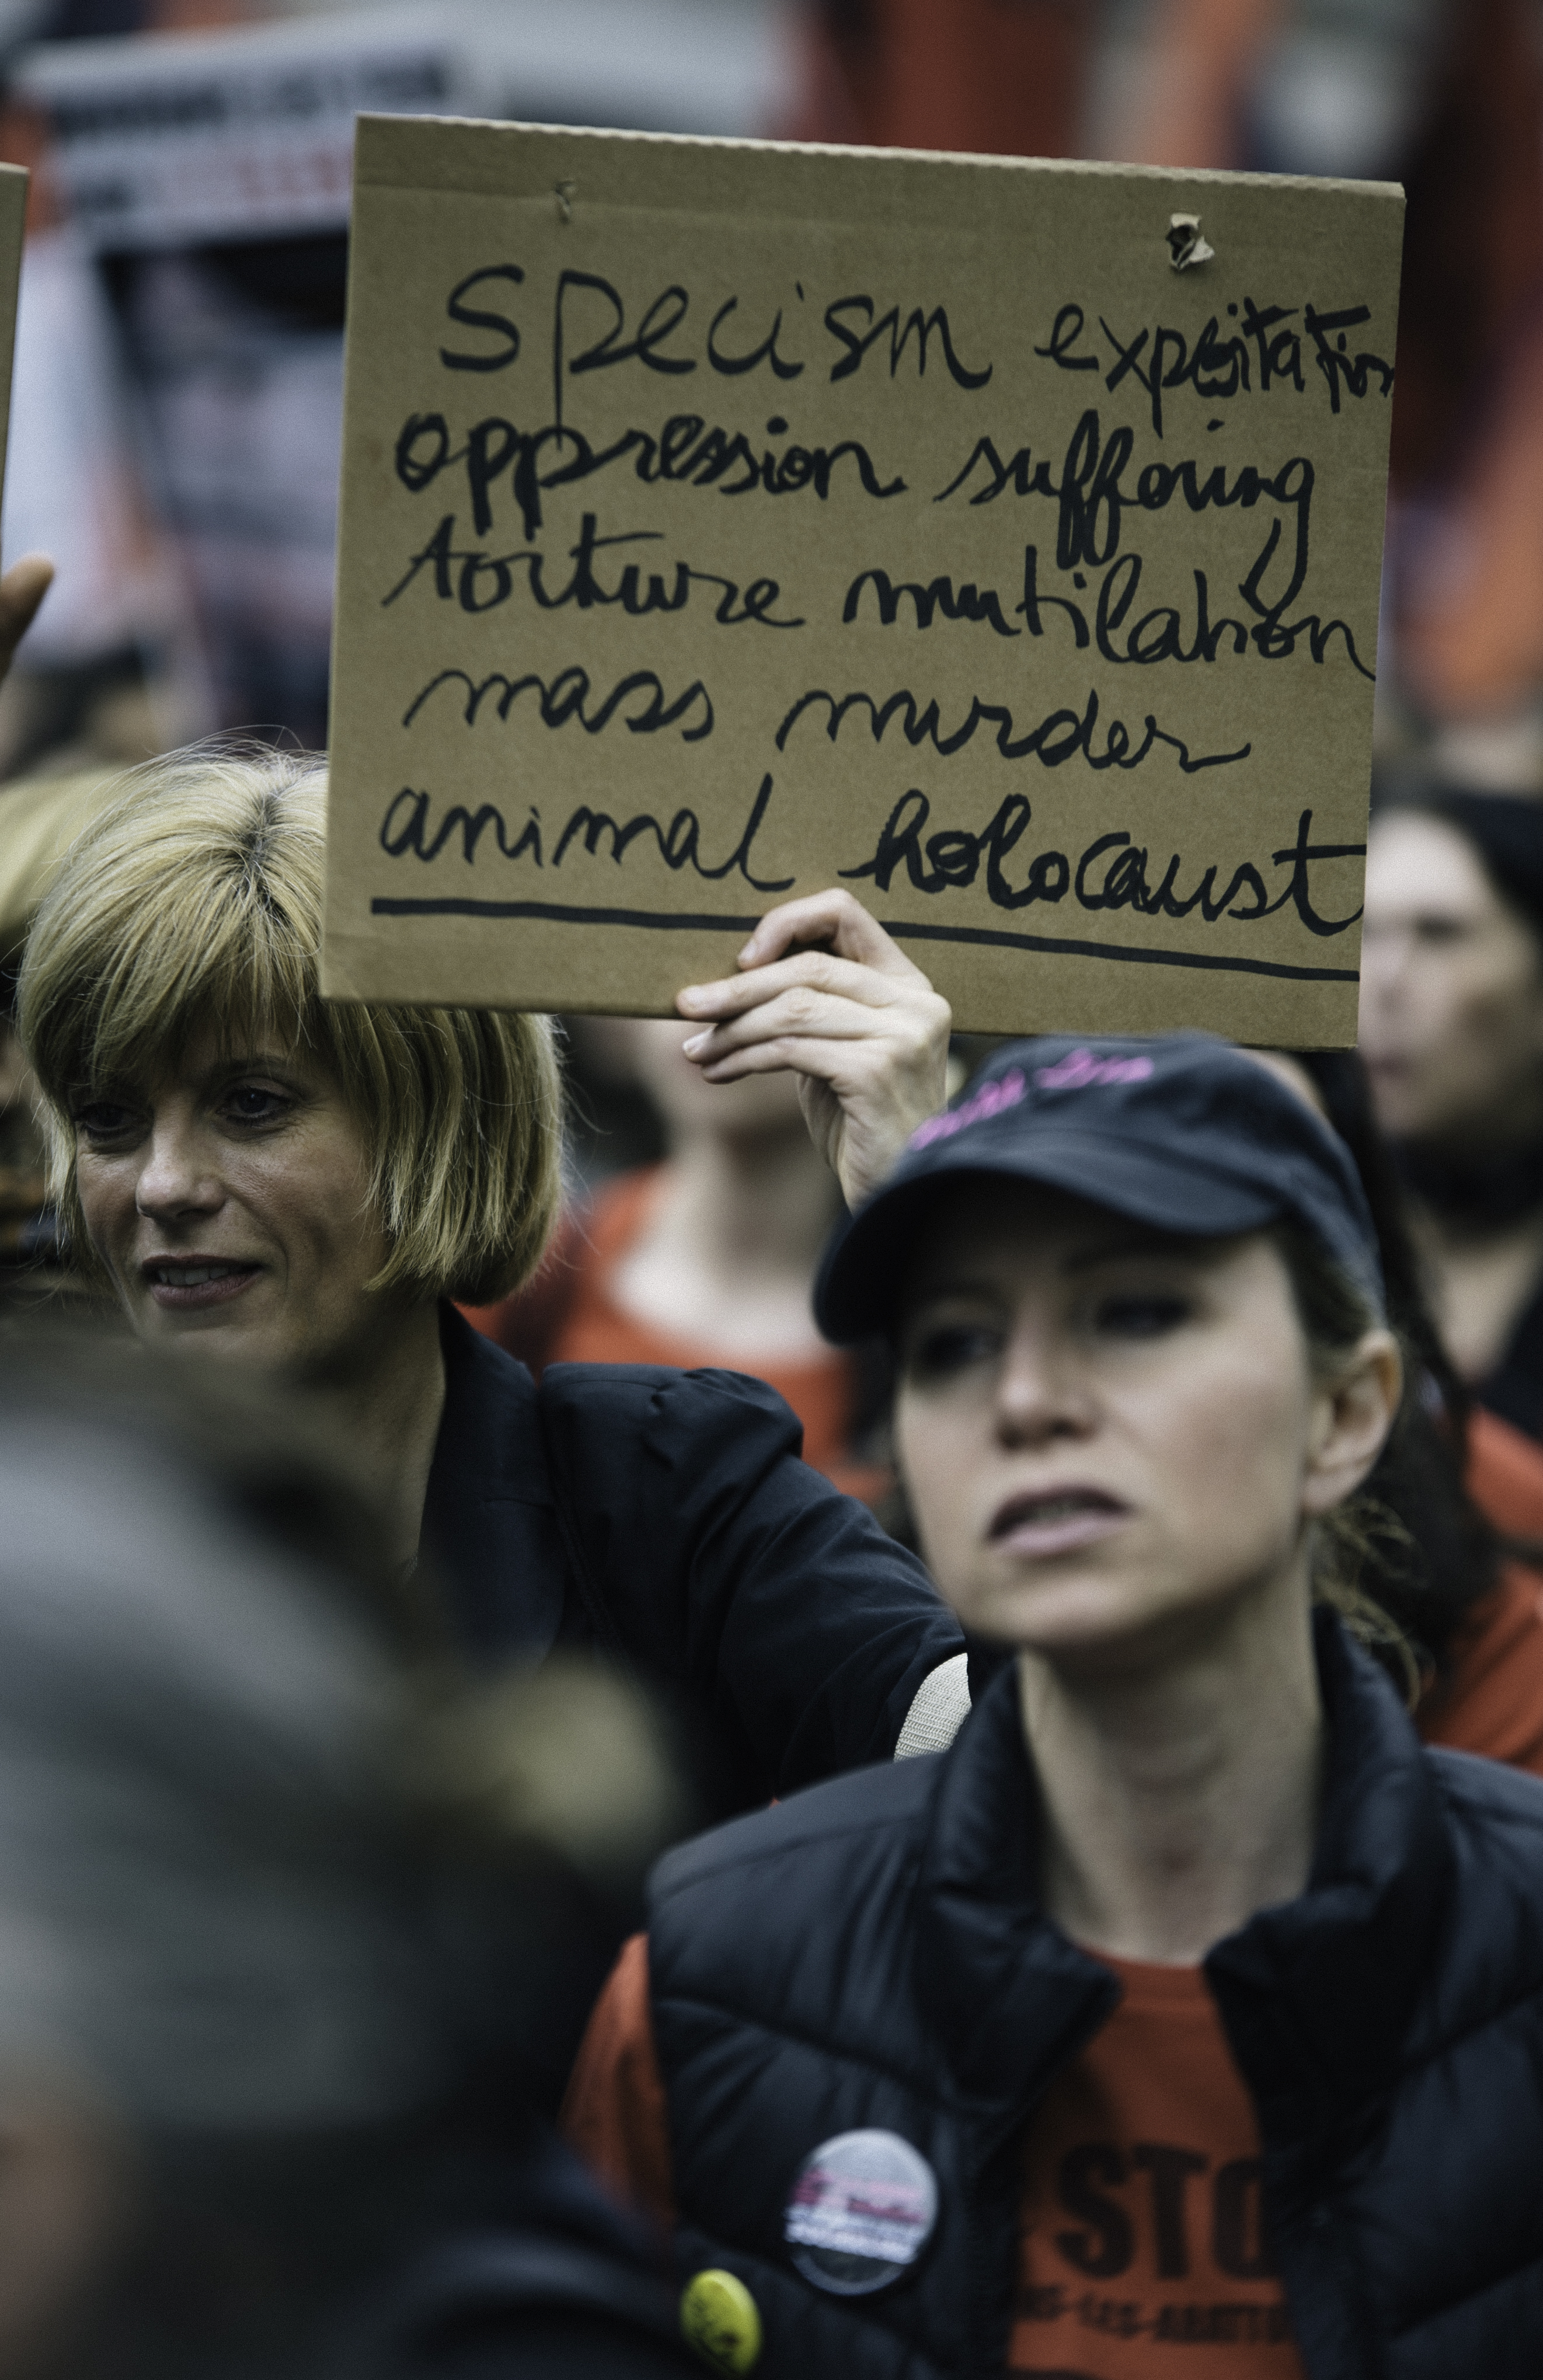 Specism expoitation
oppression suffering
torture mutilation
mass murder
animal holocaust
STO